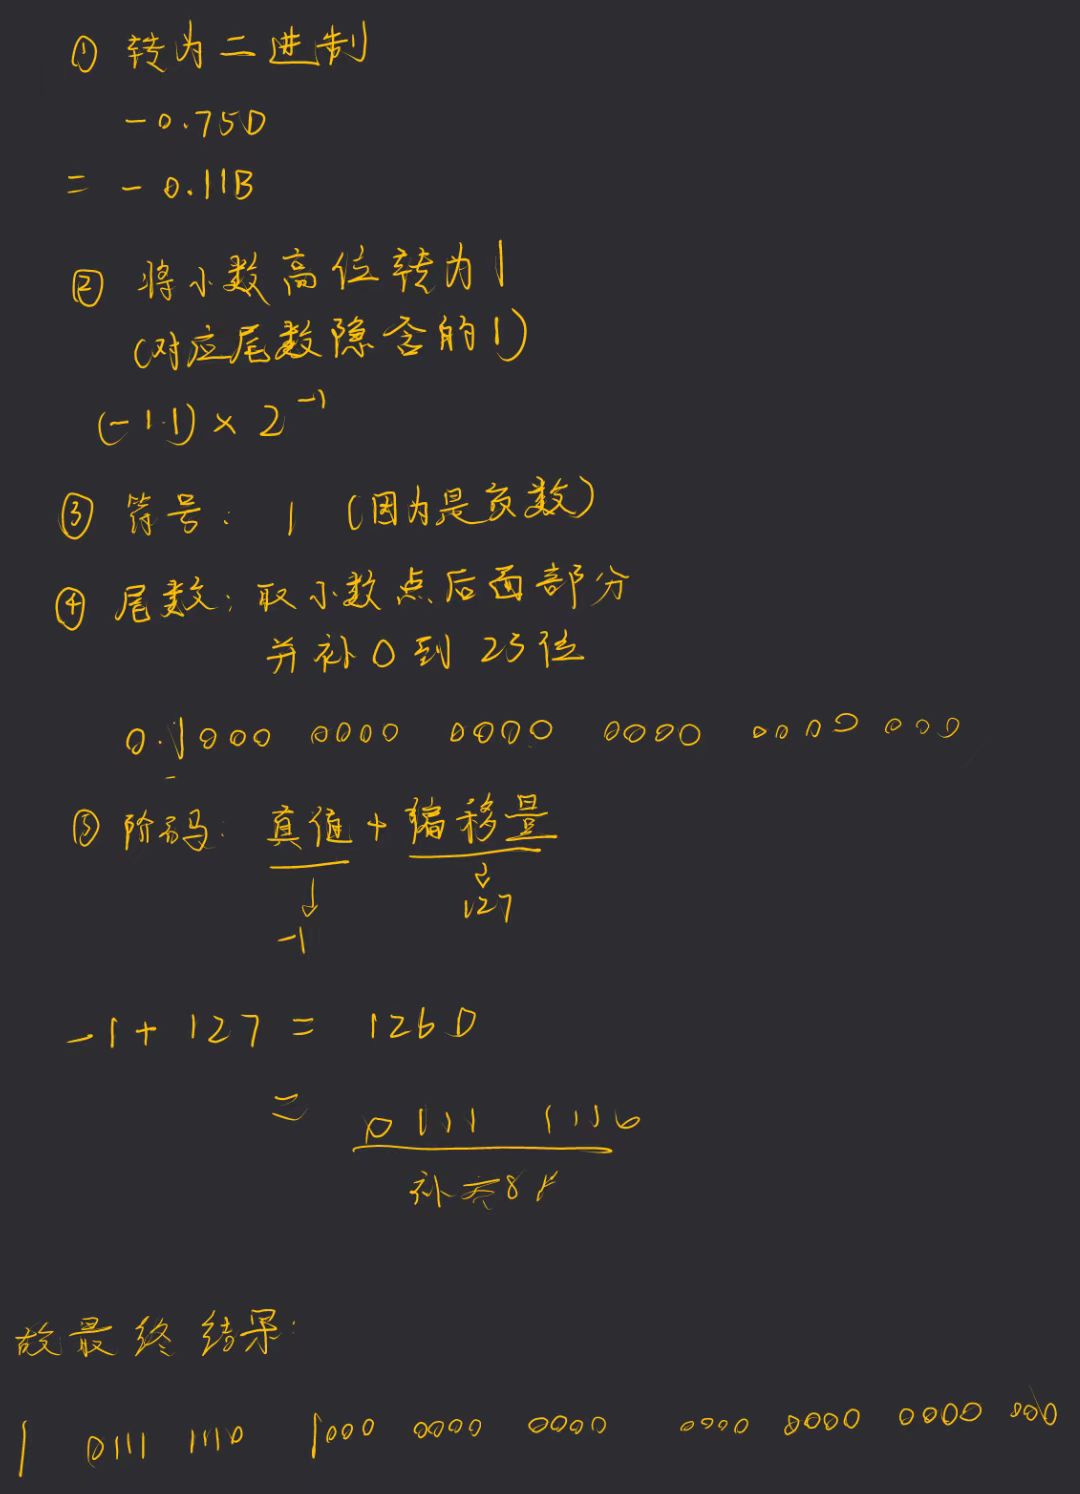 ① 转为二进制
-0.75D
= -0.11B
② 将小数高位转为1
(对应尾数隐含的1)
(-1.1) × 2⁻¹
③ 符号: 1 (因为是负数)
④ 尾数: 取小数点后面部分
并补0到23位
0.1000 0000 0000 0000 0000 000
⑤ 阶码: 真值 + 偏移量
-1 127
-1 + 127 = 126D
= 0111 1110
补 8
故最终结果:
1 0111 1110 1000 0000 0000 0000 0000 0000 000